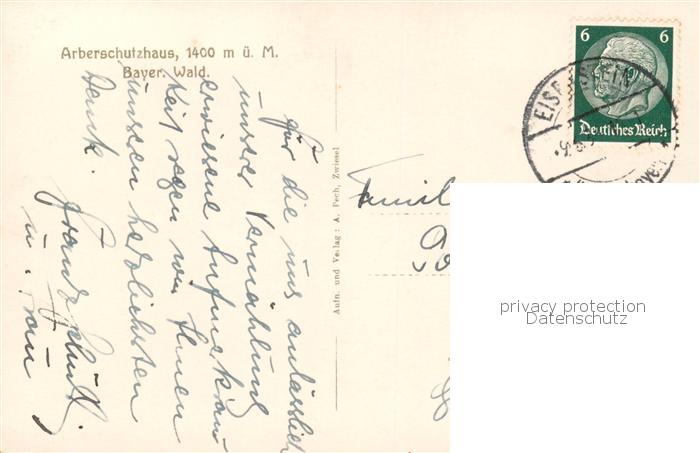 Arberschutzhaus, 1400 m ü. M.
Bayer. Wald.
Für die uns anlässlich
unserer Vermählung
erwiesene Aufmerksam
keit sagen wir Ihnen
unseren herzlichsten
Dank.
Franz
u. Frau
Aufn. und Verlag: A. Pech, Zwiesel
Famil
6 6
Deutsches Reich
EISENSTEIN
privacy protection
Datenschutz